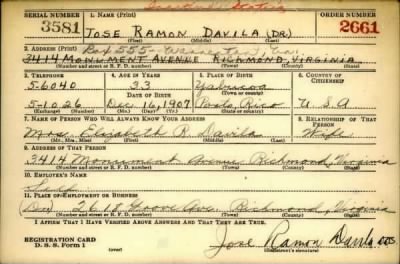 SERIAL NUMBER 1. NAME (Print) ORDER NUMBER
3581 JOSE RAMON DAVILA (DR.) 2661
(First) (Middle) (Last)
2. ADDRESS (Print) Box 555
3414 MONUMENT AVENUE RICHMOND, VIRGINIA
(Number and street or R. F. D. number) (Town) (County) (State)
3. TELEPHONE 4. AGE IN YEARS 5. PLACE OF BIRTH 6. COUNTRY OF CITIZENSHIP
5-6040 33 Yabucoa
DATE OF BIRTH (Town or county)
5-1026 Dec. 16, 1907 Porto Rico U.S.A
(Exchange) (Number) (Mo.) (Day) (Yr.) (State or country)
7. NAME OF PERSON WHO WILL ALWAYS KNOW YOUR ADDRESS 8. RELATIONSHIP OF THAT PERSON
Mrs. Elizabeth R. Davila Wife
(Mr., Mrs., Miss) (First) (Middle) (Last)
9. ADDRESS OF THAT PERSON
3414 Monument Avenue Richmond, Virginia
(Number and street or R. F. D. number) (Town) (County) (State)
10. EMPLOYER'S NAME
Self
11. PLACE OF EMPLOYMENT OR BUSINESS
2618 Grove Ave. Richmond, Virginia
(Number and street or R. F. D. number) (Town) (County) (State)
I AFFIRM THAT I HAVE VERIFIED ABOVE ANSWERS AND THAT THEY ARE TRUE.
REGISTRATION CARD
D. S. S. Form 1 Jose Ramon Davila DDS.
(Registrant's signature)